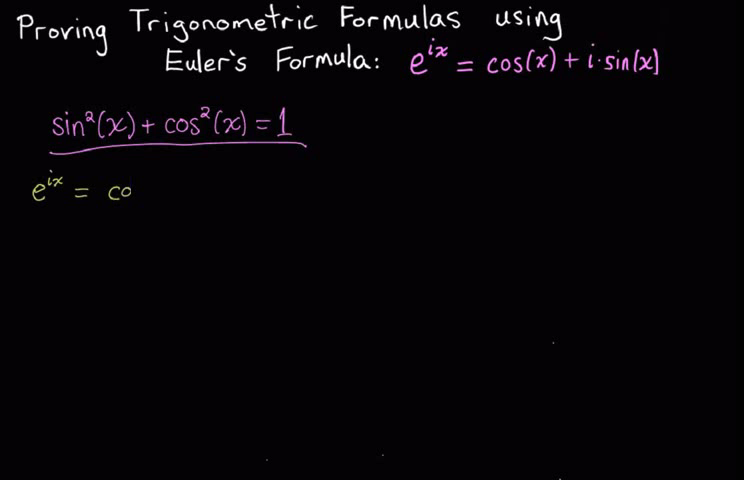 Proving Trigonometric Formulas using
Euler's Formula: e^{ix} = cos(x) + i·sin(x)
sin²(x) + cos²(x) = 1
e^{ix} = co